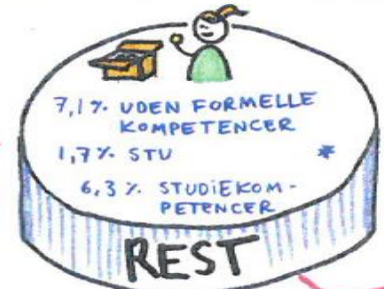 7,1 % UDEN FORMELLE
KOMPETENCER
1,7 % STU *
6,3 % STUDIEKOM-
PETENCER
REST